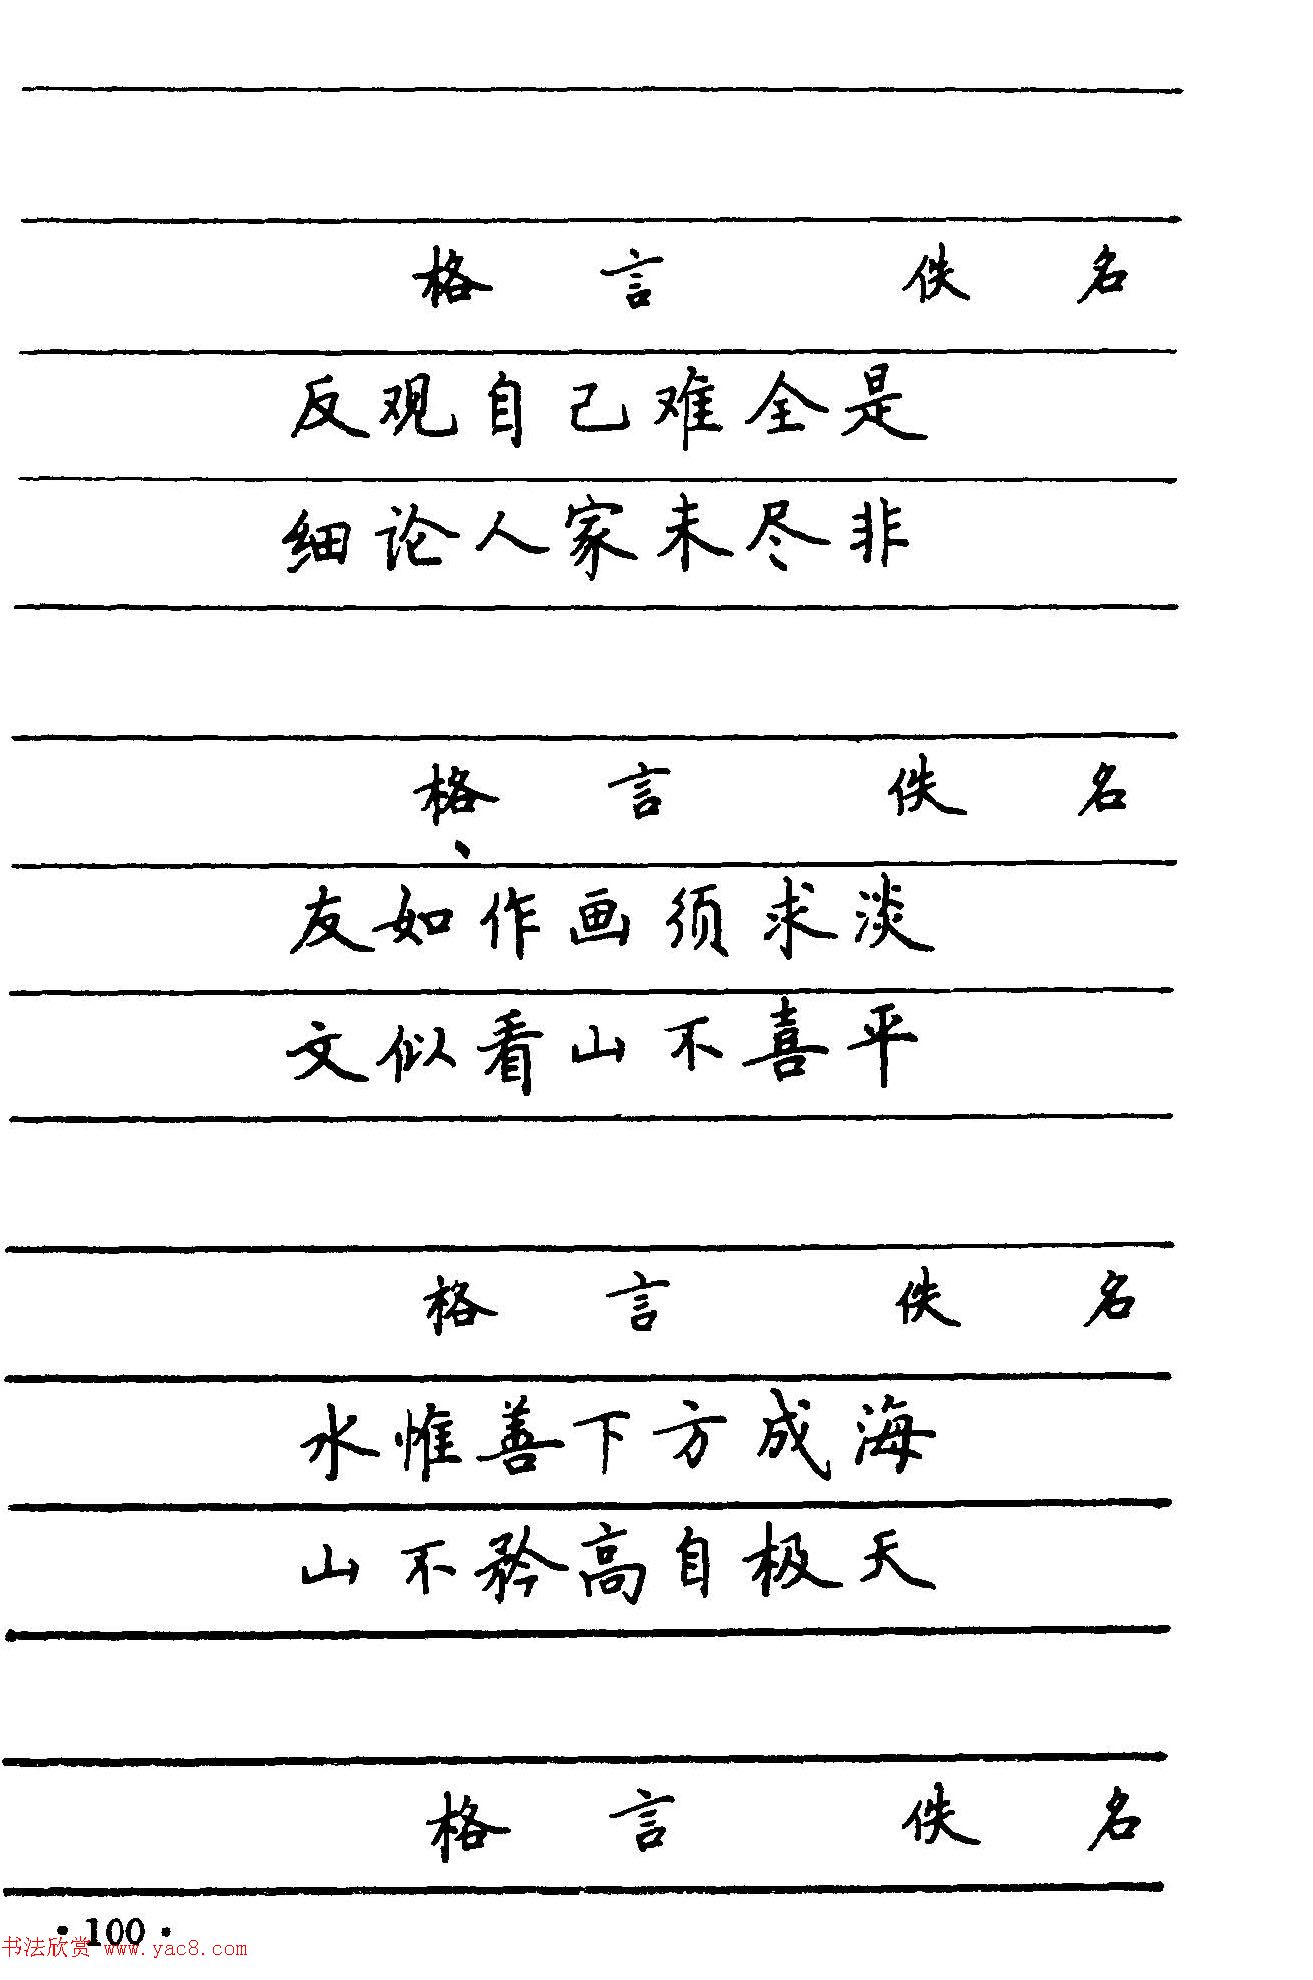 格言 佚名
反观自己难全是
细论人家未尽非
格言 佚名
友如作画须求淡
文似看山不喜平
格言 佚名
水惟善下方成海
山不矜高自极天
格言 佚名
·100·
书法欣赏 www.yac8.com